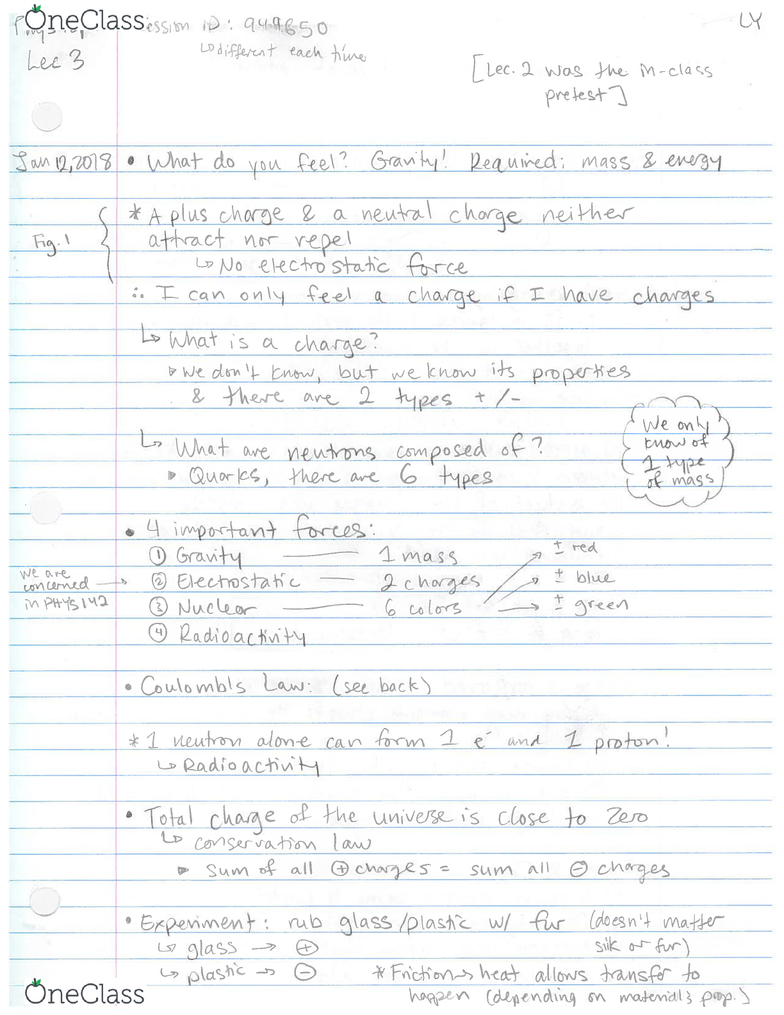 OneClass
ession ID: 949650 LY
Lec 3 ↳different each time
[Lec. 2 was the in-class
pretest]
Jan 12, 2018 • What do you feel? Gravity! Required: mass & energy
* A plus charge & a neutral charge neither
Fig. 1 attract nor repel
↳ No electrostatic force
∴ I can only feel a charge if I have charges
↳ What is a charge?
▹ We don't know, but we know its properties
& there are 2 types + / -
↳ What are neutrons composed of?
▹ Quarks, there are 6 types
We only
know of
1 type
of mass
• 4 important forces:
① Gravity —— 1 mass
② Electrostatic — 2 charges
③ Nuclear —— 6 colors
④ Radioactivity
± red
± blue
± green
we are
concerned →
in PHYS142
• Coulomb's Law: (see back)
* 1 neutron alone can form 1 e⁻ and 1 proton!
↳ Radioactivity
• Total charge of the universe is close to zero
↳ conservation law
▹ sum of all ⊕ charges = sum all ⊖ charges
• Experiment: rub glass/plastic w/ fur (doesn't matter
silk or fur)
↳ glass → ⊕
↳ plastic → ⊖ * Friction → heat allows transfer to
happen (depending on material's prop.)
OneClass